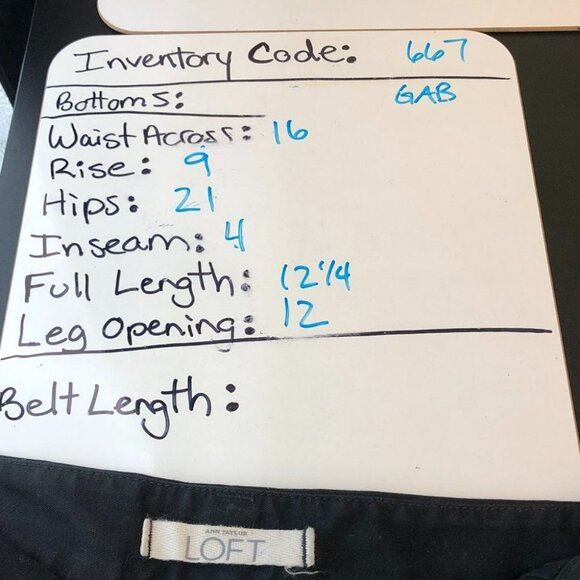 Inventory Code: 667
Bottoms: GAB
Waist Across: 16
Rise: 9
Hips: 21
Inseam: 4
Full Length: 12 1/4
Leg Opening: 12
Belt Length:
ANN TAYLOR
LOFT